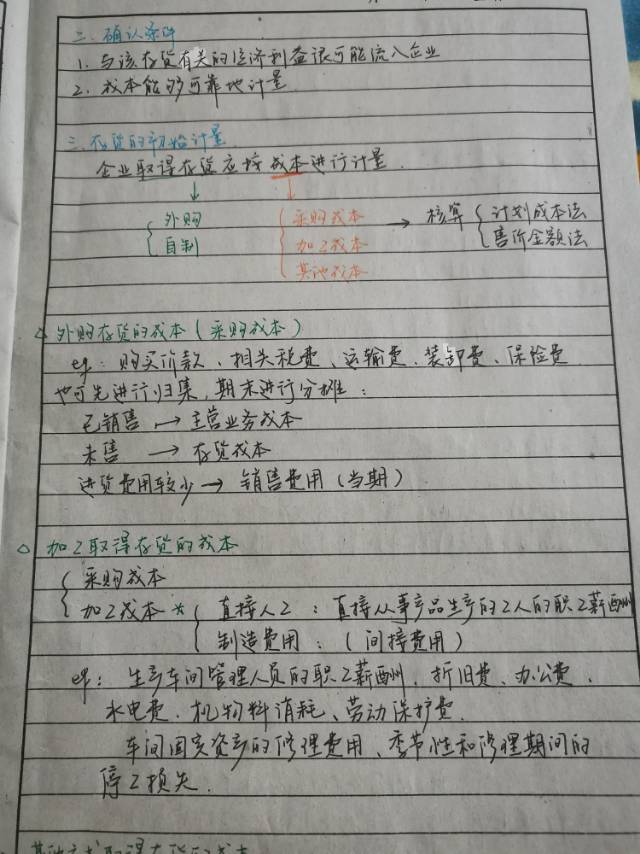 二、确认条件
1. 与该存货有关的经济利益很可能流入企业
2. 成本能够可靠地计量
三、存货的初始计量
企业取得存货应按成本进行计量.
↓ ↓
{ 外购 自制
{ 采购成本 加工成本 其他成本
→ 核算 { 计划成本法 售价金额法
△ 外购存货的成本(采购成本)
eg: 购买价款、相关税费、运输费、装卸费、保险费
也可先进行归集,期末进行分摊:
已销售 → 主营业务成本
未售 → 存货成本
进货费用较少 → 销售费用(当期)
△ 加工取得存货的成本
{ 采购成本
加工成本 * { 直接人工: 直接从事产品生产的工人的职工薪酬
制造费用: (间接费用)
eg: 生产车间管理人员的职工薪酬、折旧费、办公费、
水电费、机物料消耗、劳动保护费.
车间固定资产的修理费用、季节性和修理期间的
停工损失.
其他方式取得存货的成本